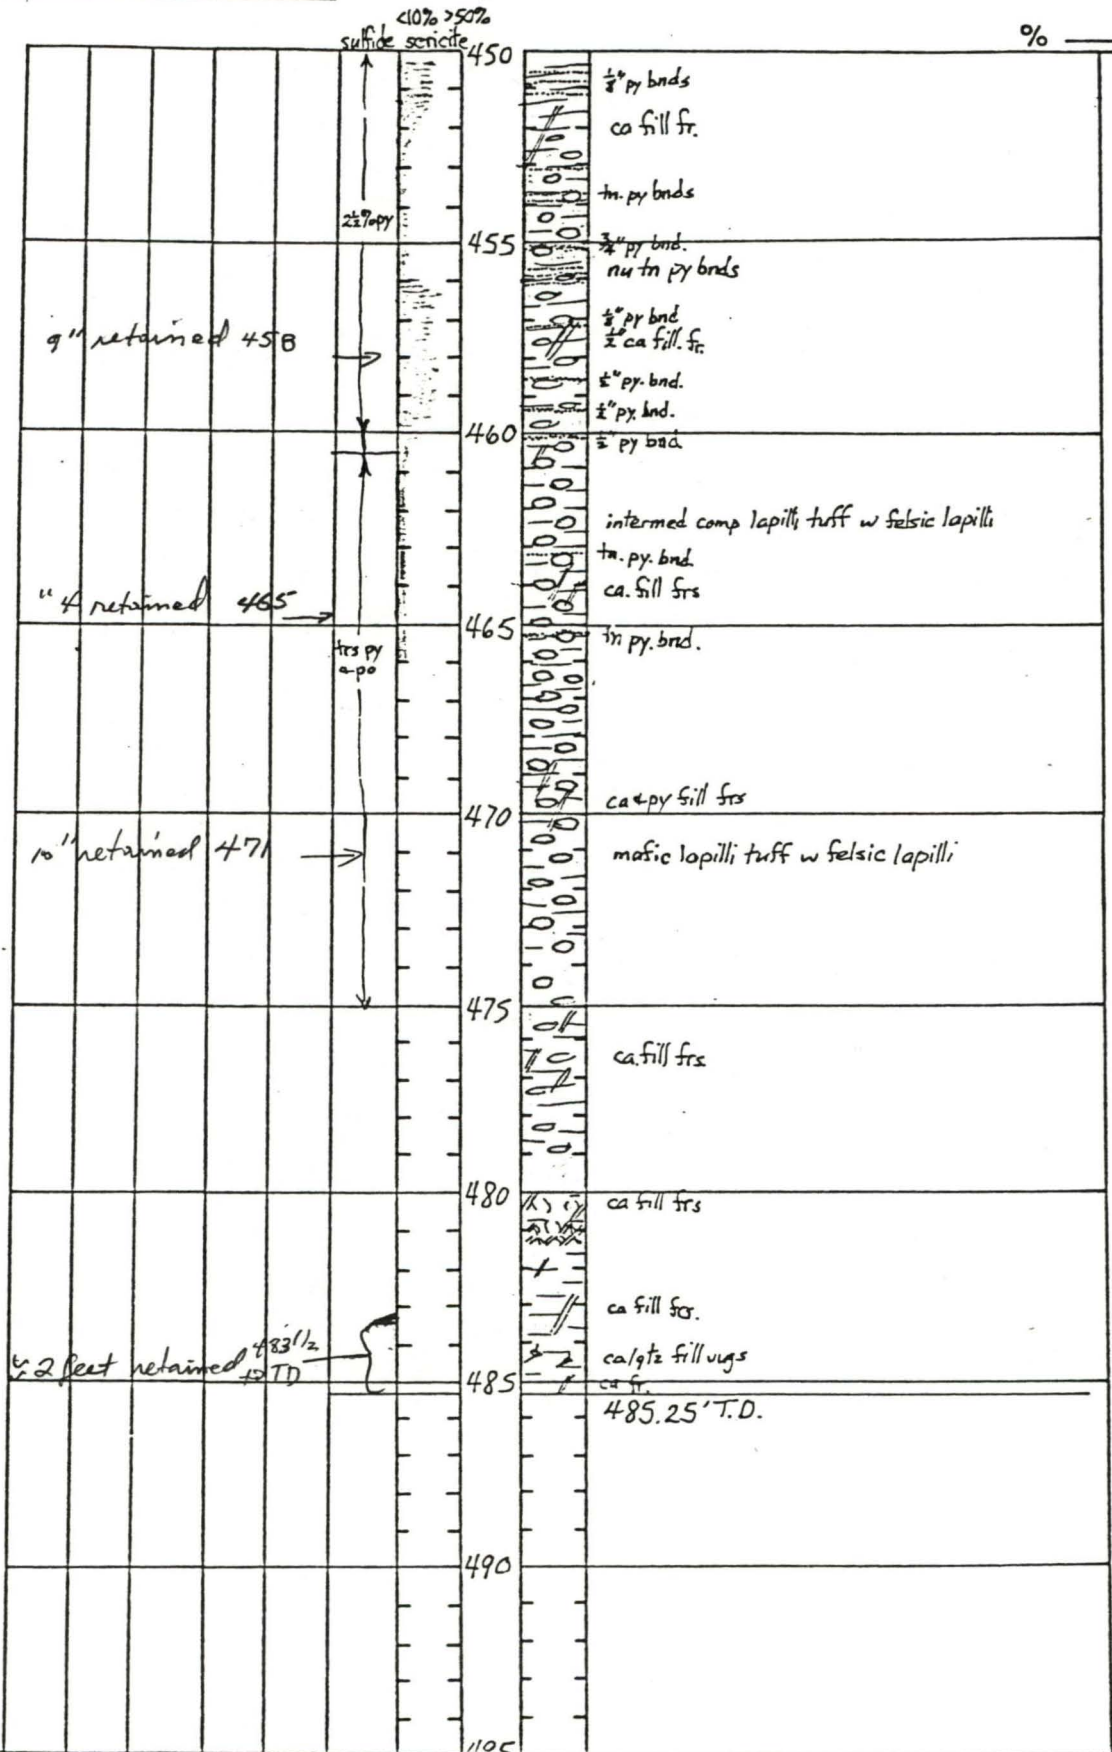 <10% >50%
sulfide sericite
%
450
1/8" py bnds
ca fill fr.
tn. py bnds
2½% py
455
3/4" py bnd.
nu tn py bnds
1/8" py bnd
½" ca fill. fr.
9" retained 458
½" py. bnd.
½" py. bnd.
460
½" py bnd
intermed comp lapilli tuff w felsic lapilli
tn. py. bnd
ca. fill frs
" 4 retained 465
465
tn py. bnd.
trs py
& po
ca & py fill frs
470
10" retained 471
mafic lapilli tuff w felsic lapilli
475
ca. fill frs
480
ca fill frs
ca fill frs.
2 feet retained 483 1/2
to TD
ca/qtz fill vugs
485
ca fr.
485.25' T.D.
490
495